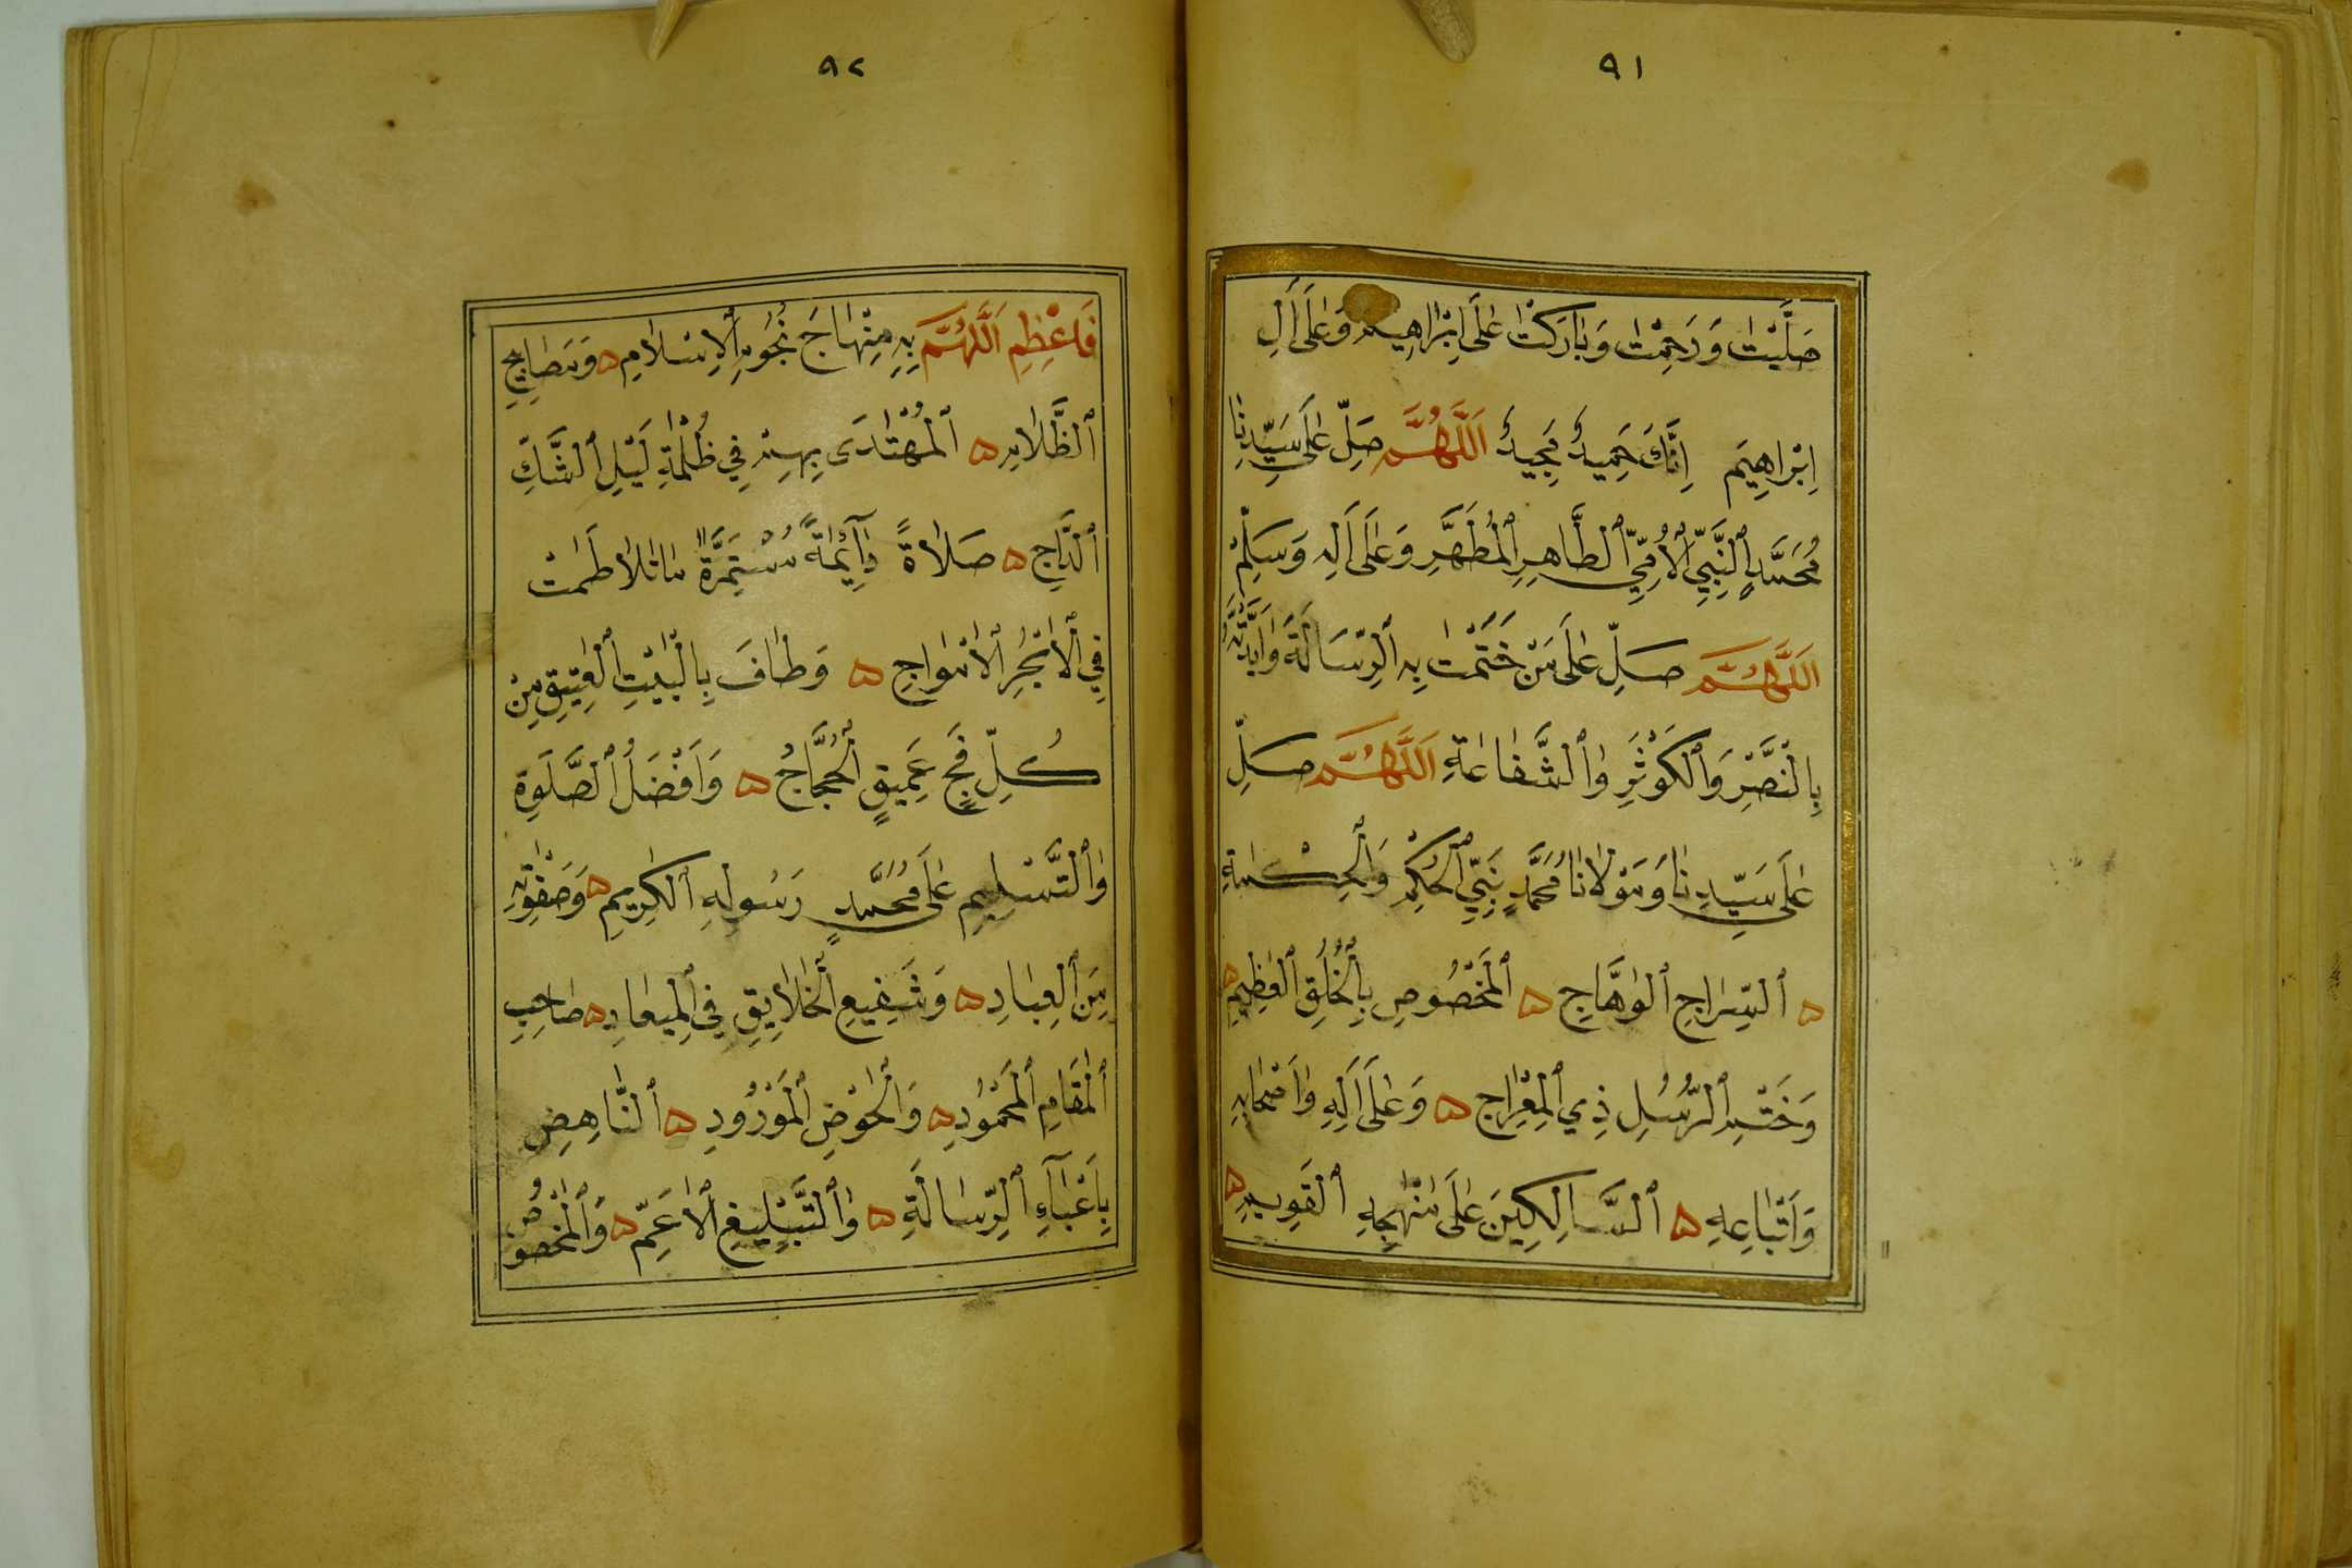 ٩١
صَلَّيْتَ وَرَحِمْتَ وَبَارَكْتَ عَلَى اِبْرَاهِيمَ وَعَلَى اَلِ
اِبْرَاهِيَم اِنَّكَ حَمِيدٌ مَجِيدٌ اَللَّهُمَّ صَلِّ عَلَى سَيِّدِنَا
مُحَمَّدٍ النَّبِيِّ الْاُمِّيِّ الطَّاهِرِ الْمُطَهَّرِ وَعَلَى اَلِهِ وَسَلِّمْ
اَللَّهُمَّ صَلِّ عَلَى مَنْ خَتَمْتَ بِهِ الرِّسَالَةَ وَاَيَّدْتَهُ
بِالنَّصْرِ وَالْكَوْثَرِ وَالشَّفَاعَةِ اَللَّهُمَّ صَلِّ
عَلَى سَيِّدِنَا وَمَوْلَانَا مُحَمَّدٍ نَبِيِّ الْحُكْمِ وَالْحِكْمَةِ
ه السِّرَاجِ الْوَهَّاجِ ه الْمَخْصُوصِ بِالْخُلُقِ الْعَظِيمِ ه
وَخَتْمِ الرُّسُلِ ذِي الْمِعْرَاجِ ه وَعَلَى اَلِهِ وَاَصْحَابِهِ
وَاَتْبَاعِهِ ه السَّالِكِينَ عَلَى مَنْهَجِهِ الْقَوِيمِ ه
٩٢
فَاَعْظِمِ اَللَّهُمَّ بِهِ مِنْهَاجَ نُجُومِ الْاِسْلَامِ ه وَمَصَابِيحِ
الظَّلَامِ ه الْمُهْتَدَى بِهِمْ فِي ظُلْمَةِ لَيْلِ الشَّكِّ
الدَّاجِ ه صَلَاةً دَآئِمَةً مُسْتَمِرَّةً مَا تَلَاطَمَتْ
فِي الْاَبْحُرِ الْاَمْوَاجِ ه وَطَافَ بِالْبَيْتِ الْعَتِيقِ مِنْ
كُلِّ فَجٍّ عَمِيقٍ الْحُجَّاجُ ه وَاَفْضَلُ الصَّلَوةِ
وَالتَّسْلِيمِ عَلَى مُحَمَّدٍ رَسُولِهِ الْكَرِيمِ ه وَصَفْوَتِهِ
مِنَ الْعِبَادِ ه وَشَفِيعِ الْخَلَايِقِ فِي الْمِيعَادِ ه صَاحِبِ
الْمَقَامِ الْمَحْمُودِ ه وَالْحَوْضِ الْمَوْرُودِ ه النَّاهِضِ
بِاَعْبَآءِ الرِّسَالَةِ ه وَالتَّبْلِيغِ الْاَعَمِّ ه وَالْمَخْصُوصِ